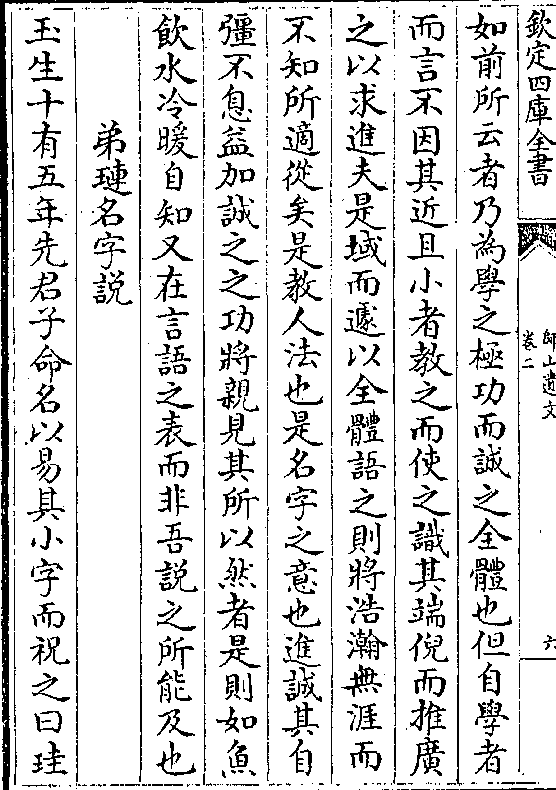 欽定四庫全書
師山遺文
卷二
六
如前所云者乃為學之極功而誠之全體也但自學者
而言不因其近且小者教之而使之識其端倪而推廣
之以求進夫是域而遽以全體語之則將浩瀚無涯而
不知所適從矣是教人法也是名字之意也進誠其自
彊不息益加誠之之功將親見其所以然者是則如魚
飲水冷暖自知又在言語之表而非吾説之所能及也
弟璉名字説
玉生十有五年先君子命名以易其小字而祝之曰珪